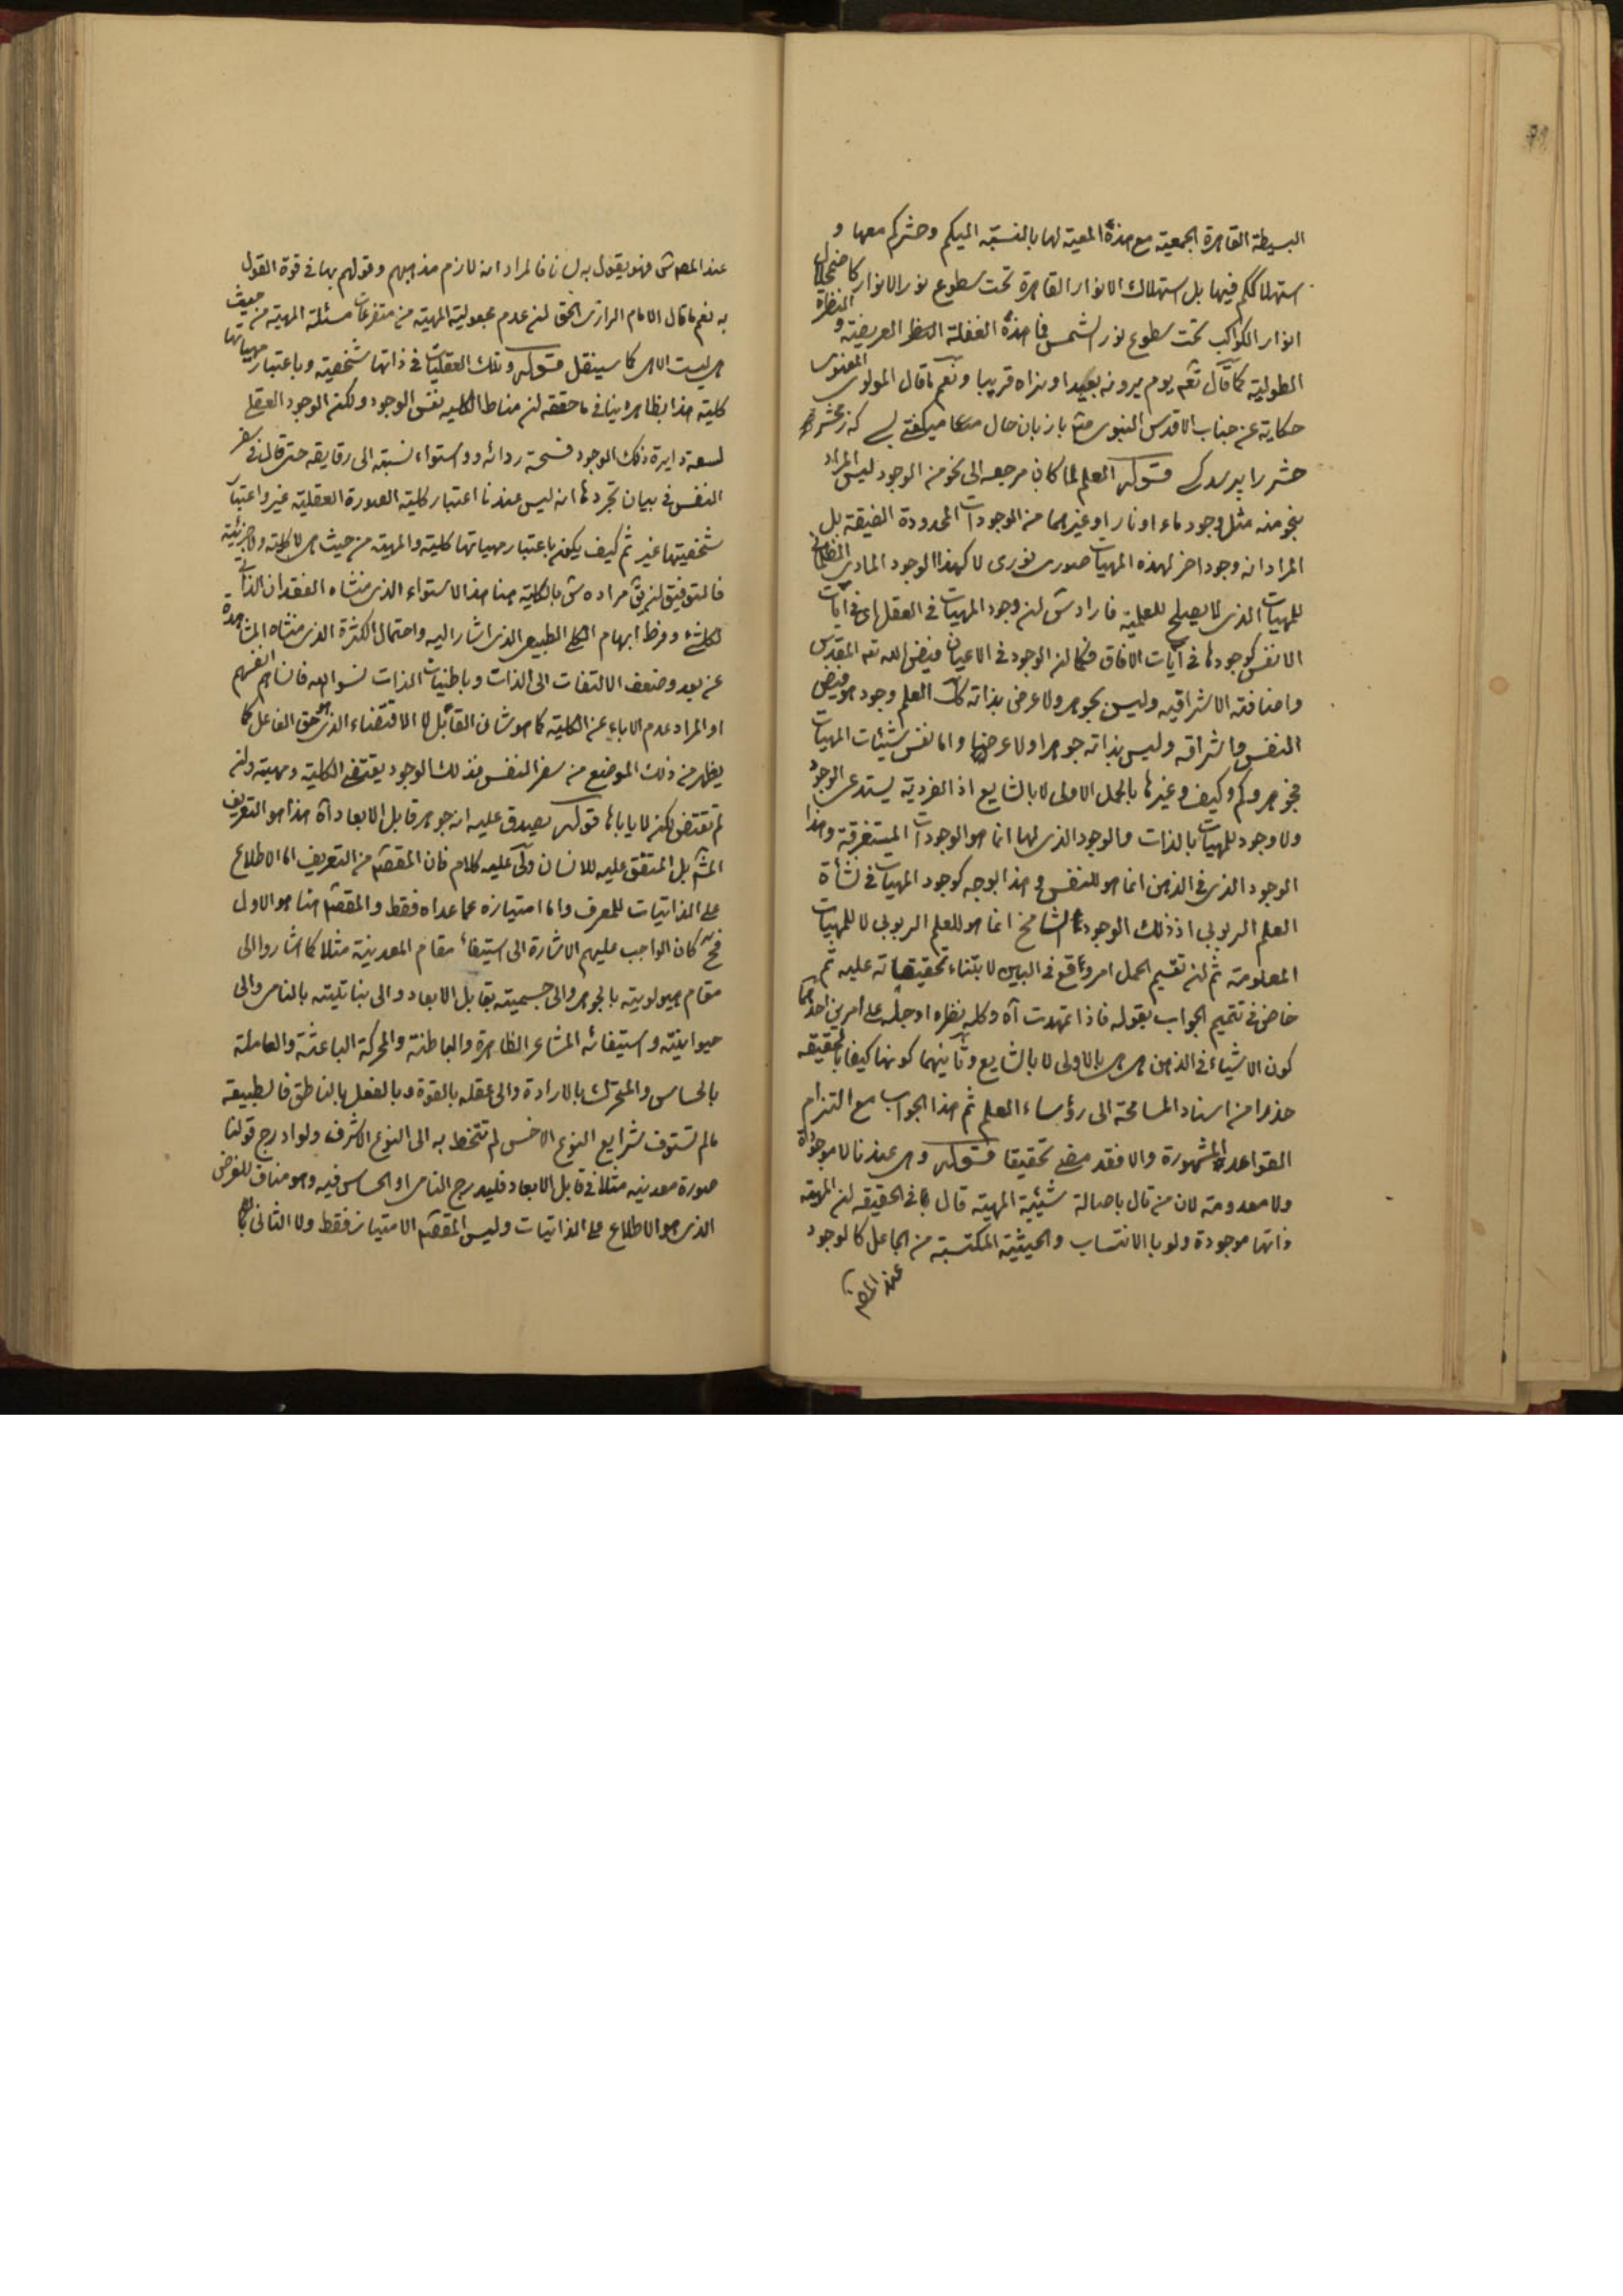 البسیطة القاهرة الجمعیة مع هذه المعیة لها بالنسبة الیکم وحشرکم معها و
استهلاککم فیها بل استهلاک الانوار القاهرة تحت سطوع نور الانوار کاضمحلال
انوار الکواکب تحت سطوع نور الشمس فما هذه الغفلة النظر العریضیة و
الطولیة کما قال تعه یوم یرونه بعیدا ونراه قریبا ونعم ما قال المولوی المعنوی
حکایة عن جناب الاقدس النبوی با زبان حال میگفتی بسی که ز محشر
حشر را پرسد کسی قوله العلم لما کان مرجعه الی نحو من الوجود لیس المراد
بنحو منه مثل وجود ماء او نار او غیرهما من الموجودات المحدودة الضیقة بل
المراد انه وجود اخر لهذه المهیات صوری نوری لا کهذا الوجود المادی الظلمانی
للمهیات الذی لا یصلح للعلمیة فاراد ان وجود المهیات فی العقل ای فی آیات
الانفس کوجودها فی آیات الافاق فکما ان الوجود فی الاعیان فیض الله تعه المقدس
واضافته الاشراقیه ولیس بجوهر ولا عرض بذاته کک العلم وجود هو فیض
النفس واشراقه ولیس بذاته جوهرا ولا عرضا واما نفس شیئیات المهیات
فجوهر وکم وکیف وغیرها بالحمل الاولی لا بالشایع اذ الفردیة یستدعی الوجود
ولا وجود للمهیات بالذات والوجود الذی لها انما هو الوجودات المتفرقة وهذا
الوجود الذی فی الذهن انما هو للنفس فی هذا بوجه کوجود المهیات فی نشأة
العلم الربوبی اذ ذلک الوجود الشامخ انما هو للعلم الربوبی لا للمهیات
المعلومة ثم ان تقسیم الحمل امر وقع فی البین لابتناء تحقیقاته علیه ثم
خاض فی تتمیم الجواب بقوله فاذا تمهدت آه وکلمه نظره او جله علی امرین احدهما
کون الاشیاء فی الذهن هی هی بالاولی لا بالشایع وثانیهما کونها کیفا بالحقیقه
حذرا من اسناد المسامحة الی رؤساء العلم ثم هذا الجواب مع التزام
القواعد المشهورة والا فقد مضی تحقیقا قوله وهی عندنا لا موجودة
ولا معدومة لان من قال باصالة شیئیة المهیة قال بما فی الحقیقه ان المهیة
ذاتها موجودة ولو بالانتساب والحیثیة المکتسبة من الجاعل کالوجود
عند المص
عند المص فهو یقول به لسانا فالمراد انه لازم مذهبهم وقولهم بها فی قوة القول
به نعم ما قال الامام الرازی الحق ان عدم مجعولیة المهیة من متفرعات مسئلة المهیة من حیث
هی لیست الا هی کما سینقل قوله وتلک العقلیات فی ذاتها شخصیه وباعتبار مهیاتها
کلیة هذا بظاهره ینافی ما حققه ان مناط الکلیه نفس الوجود ولکنه الوجود العقلی
لسعة دایرة ذلک الوجود وفسحة ردائه و واستواء نسبته الی رقایقه حتی قال فی سفر
النفس فی بیان تجردها انه لیس عندنا اعتبار کلیة الصورة العقلیة غیر واعتبار
شخصیتها غیر ثم کیف یکون باعتبار مهیاتها کلیة والمهیة من حیث هی لا کلیة ولا جزئیة
فالتوفیق ان یق مراده بالکلیة هنا هذا الاستواء الذی منشاه الفقدان الذاتی
لکل شئ وفرط ابهام الکلی الطبیعی الذی اشار الیه واحتمال الکثرة الذی منشاه المشاهدة
عن بعد وضعف الالتفات الی الذات وباطنیات الذات نسوا الله فانساهم انفسهم
او المراد عدم الاباء عن الکلیة کما هو شان القابل لا الاقتضاء الذی هو حق الفاعل کما
یظهر من ذلک الموضع من سفر النفس فذلک الوجود یقتضی الکلیة ومهیته وان
لم تقتض لکن لا یاباها قوله یصدق علیه انه جوهر قابل الابعاد آه هذا هو التعریف
المشه بل المتفق علیه للانسان ولی علیه کلام فان المقصم من التعریف اما الاطلاع
علی الذاتیات للمعرف واما امتیازه عما عداه فقط والمقصم هنا هو الاول
فح کان الواجب علیهم الاشارة الی استیفاء مقام المعدنیة مثلا کما اشاروا الی
مقام هیولویته بالجوهر والی جسمیته بقابل الابعاد والی بناتیته بالنامی والی
حیوانیته واستیفائه المشاعر الظاهرة والباطنة والمحرکة الباعثة والعاملة
بالحساس والمتحرک بالارادة والی عقله بالقوة وبالفعل بالناطق فالطبیعة
مالم تستوف شرایع النوع الاخس لم تتخط به الی النوع الاشرف ولو ادرج قولنا
صورة معدنیه مثلا فی قابل الابعاد فلیدرج النامی او الحساس فیه وهو مناف للغرض
الذی هو الاطلاع علی الذاتیات ولیس المقصم الامتیاز فقط ولا الثانی